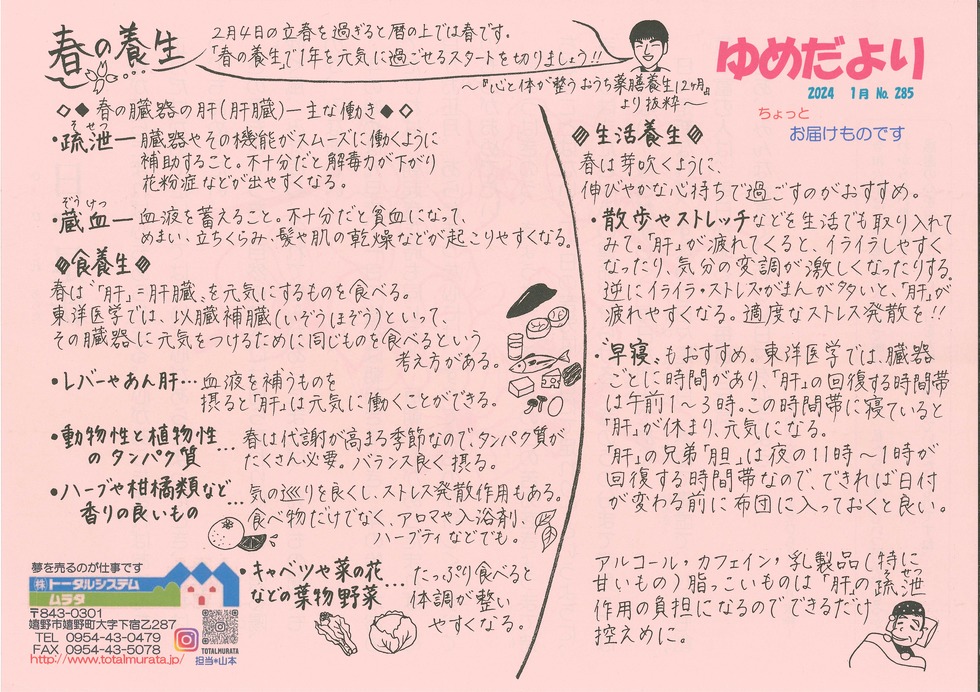 春の養生
2月4日の立春を過ぎると暦の上では春です。
「春の養生」で1年を元気に過ごせるスタートを切りましょう!!
〜『心と体が整うおうち薬膳養生12ヶ月』
より抜粋〜
ゆめだより
2024 1月 No. 285
ちょっと
お届けものです
◇◆ 春の臓器の肝(肝臓)ー主な働き◆◇
・疏泄ー臓器やその機能がスムーズに働くように
そせつ
補助すること。不十分だと解毒力が下がり
花粉症などが出やすくなる。
ぞうけつ
・蔵血ー血液を蓄えること。不十分だと貧血になって、
めまい、立ちくらみ、髪や肌の乾燥などが起こりやすくなる。
食養生
春は“「肝」=肝臓”を元気にするものを食べる。
東洋医学では、以臓補臓(いぞうほぞう)といって、
その臓器に元気をつけるために同じものを食べるという
考え方がある。
・レバーやあん肝…血液を補うものを
摂ると「肝」は元気に働くことができる。
・動物性と植物性
のタンパク質
…春は代謝が高まる季節なので、タンパク質が
たくさん必要。バランス良く摂る。
・ハーブや柑橘類など
香りの良いもの
…気の巡りを良くし、ストレス発散作用もある。
食べ物だけでなく、アロマや入浴剤、
ハーブティなどでも。
・キャベツや菜の花
などの葉物野菜
…たっぷり食べると
体調が整い
やすくなる。
生活養生
春は芽吹くように、
伸びやかな心持ちで過ごすのがおすすめ。
・散歩やストレッチなどを生活でも取り入れて
みて。「肝」が疲れてくると、イライラしやすく
なったり、気分の変調が激しくなったりする。
逆にイライラ・ストレス・がまんが多いと、「肝」が
疲れやすくなる。適度なストレス発散を!!
・“早寝”もおすすめ。東洋医学では、臓器
ごとに時間があり、「肝」の回復する時間帯
は午前1〜3時。この時間帯に寝ていると
「肝」が休まり、元気になる。
「肝」の兄弟「胆」は夜の11時〜1時が
回復する時間帯なので、できれば日付
が変わる前に布団に入っておくと良い。
アルコール・カフェイン・乳製品(特に
甘いもの)脂っこいものは「肝」の疏泄
せつ
作用の負担になるのでできるだけ
控えめに。
夢を売るのが仕事です
(株)トータルシステム
ムラタ
〒843-0301
嬉野市嬉野町大字下宿乙287
TEL 0954-43-0479
FAX 0954-43-5078
http://www.totalmurata.jp/
TOTALMURATA
担当*山本